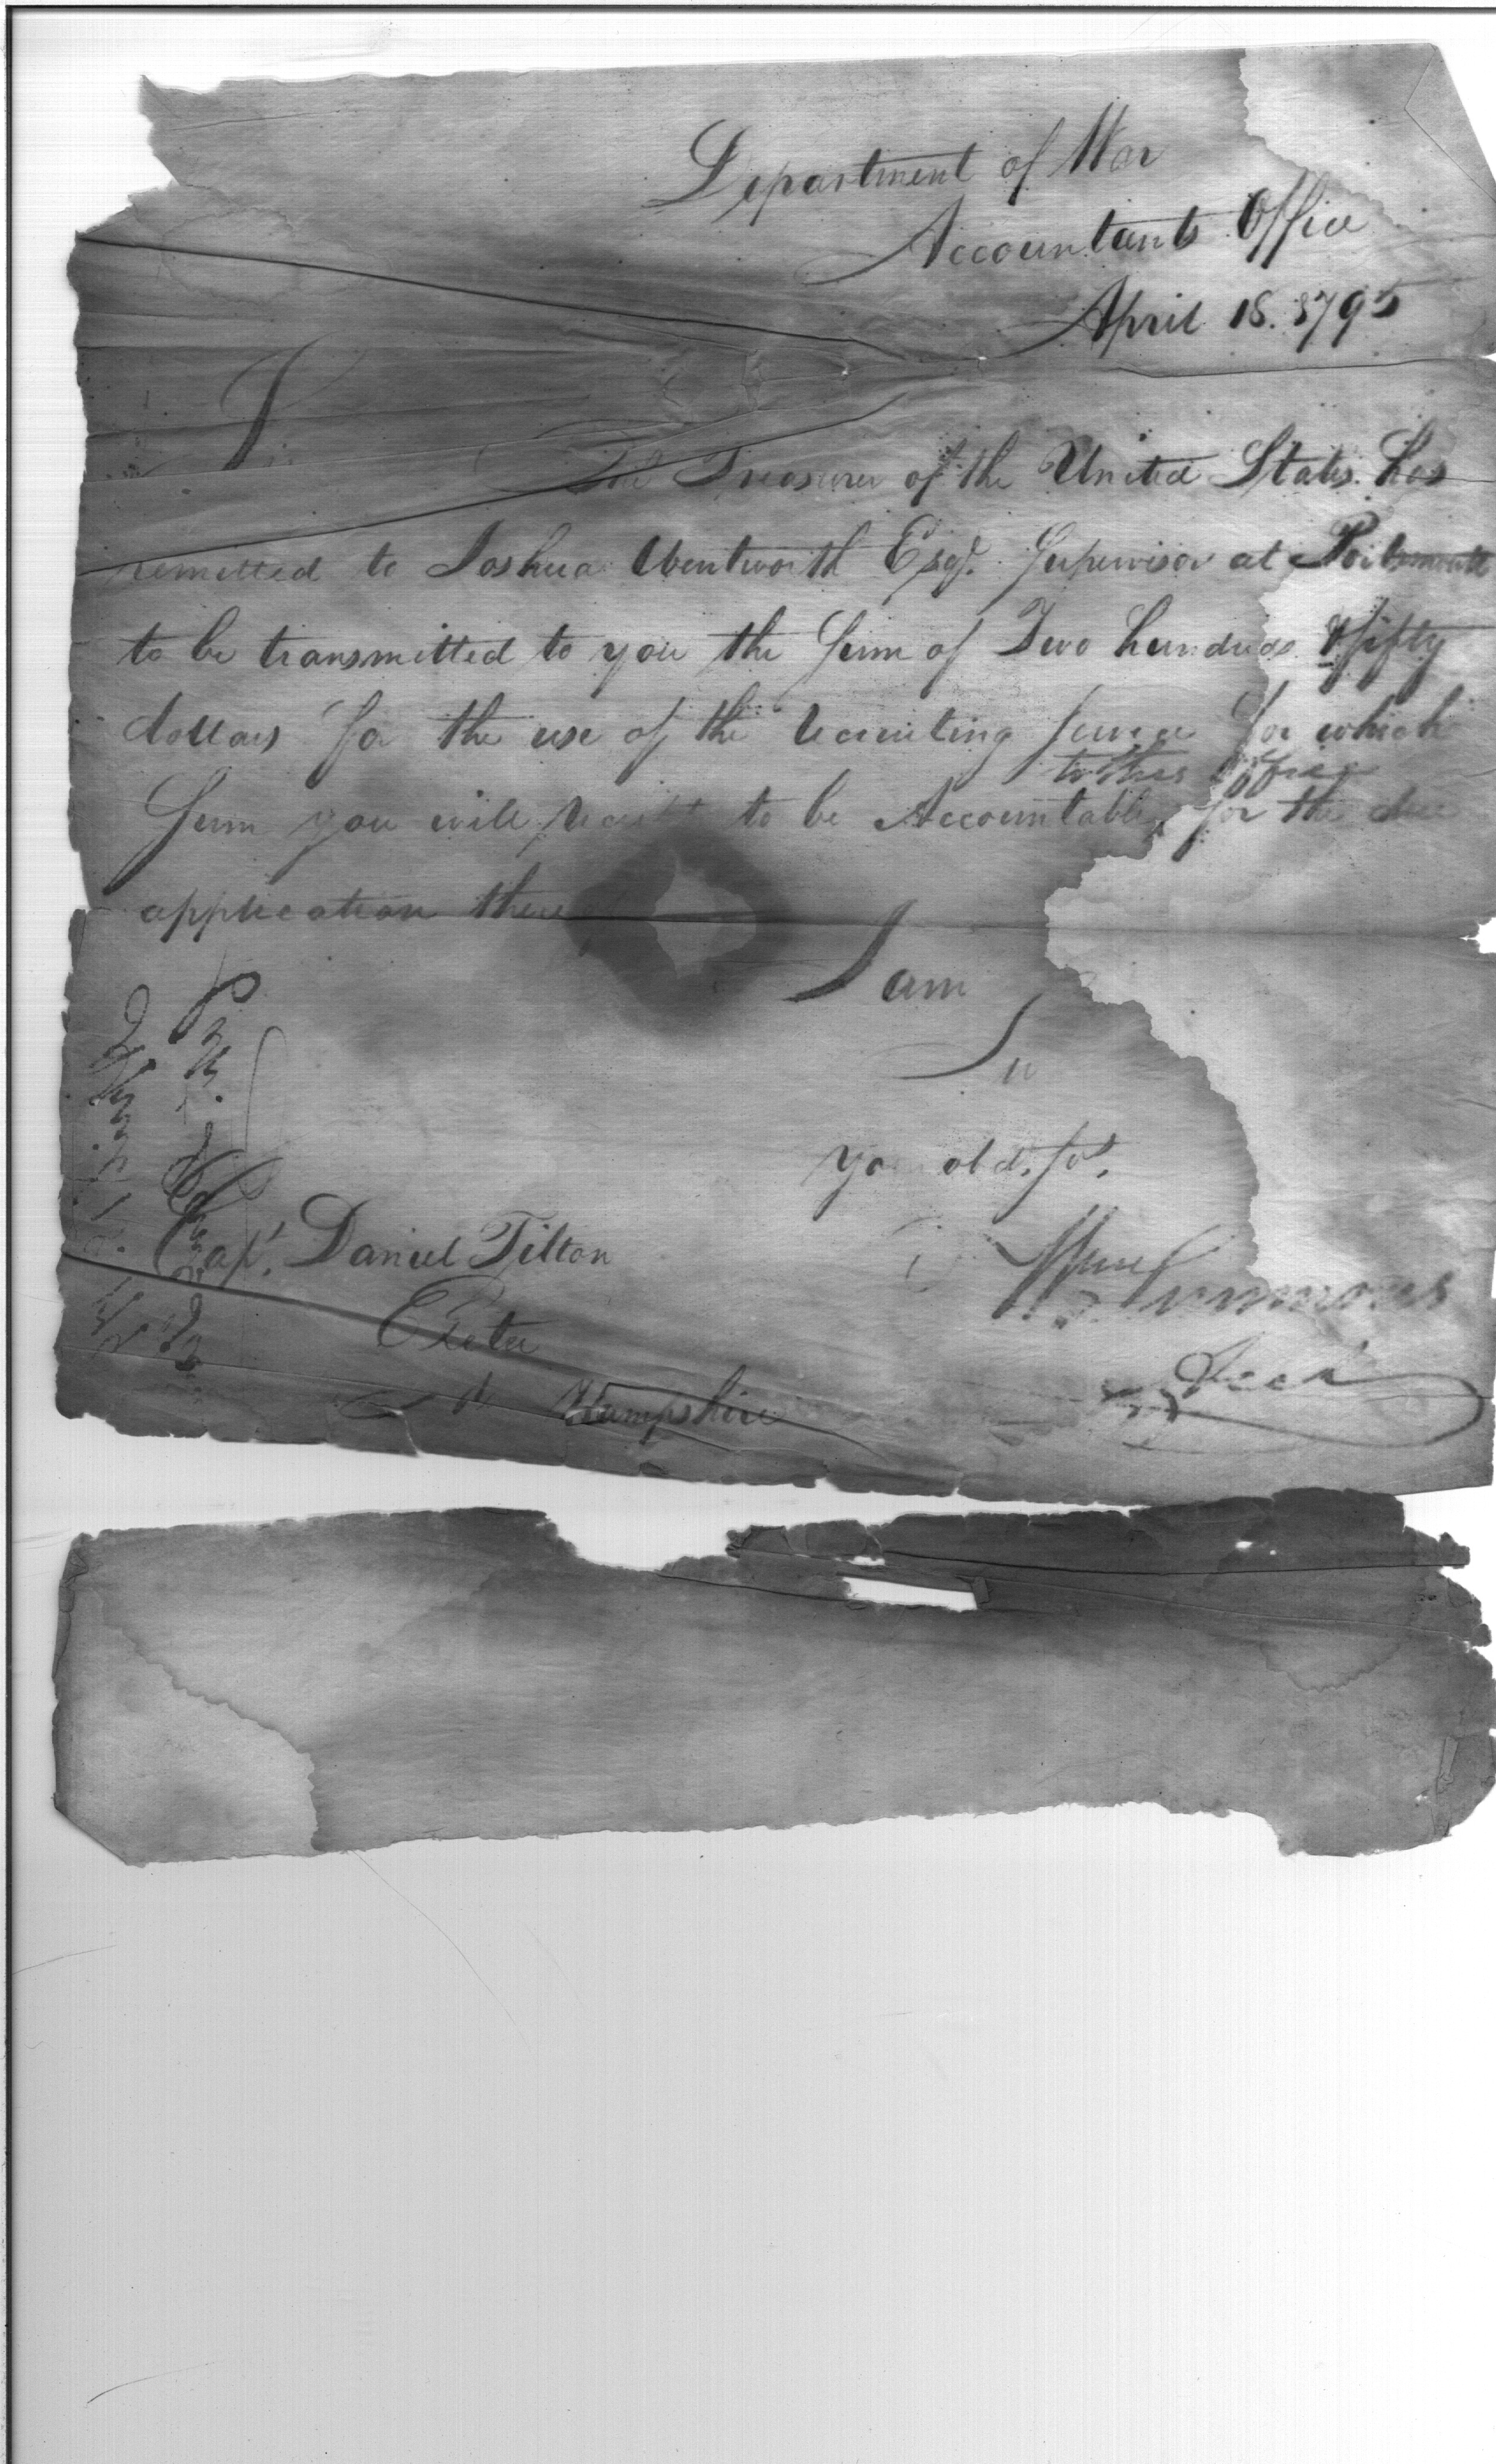 Department of War
Accountants Office
April 18. 1795
The Treasurer of the United States has
remitted to Joshua Wentworth Esqr. Supervisor at Portsmouth
to be transmitted to you the Sum of Two hundred & fifty
dollars for the use of the recruiting service for which
to this Office
Sum you will to be Accountable for the due
application
I am
Sir
obd. St.
Wm Simmons
Capt. Daniel Tilton
Exeter
N Hampshire